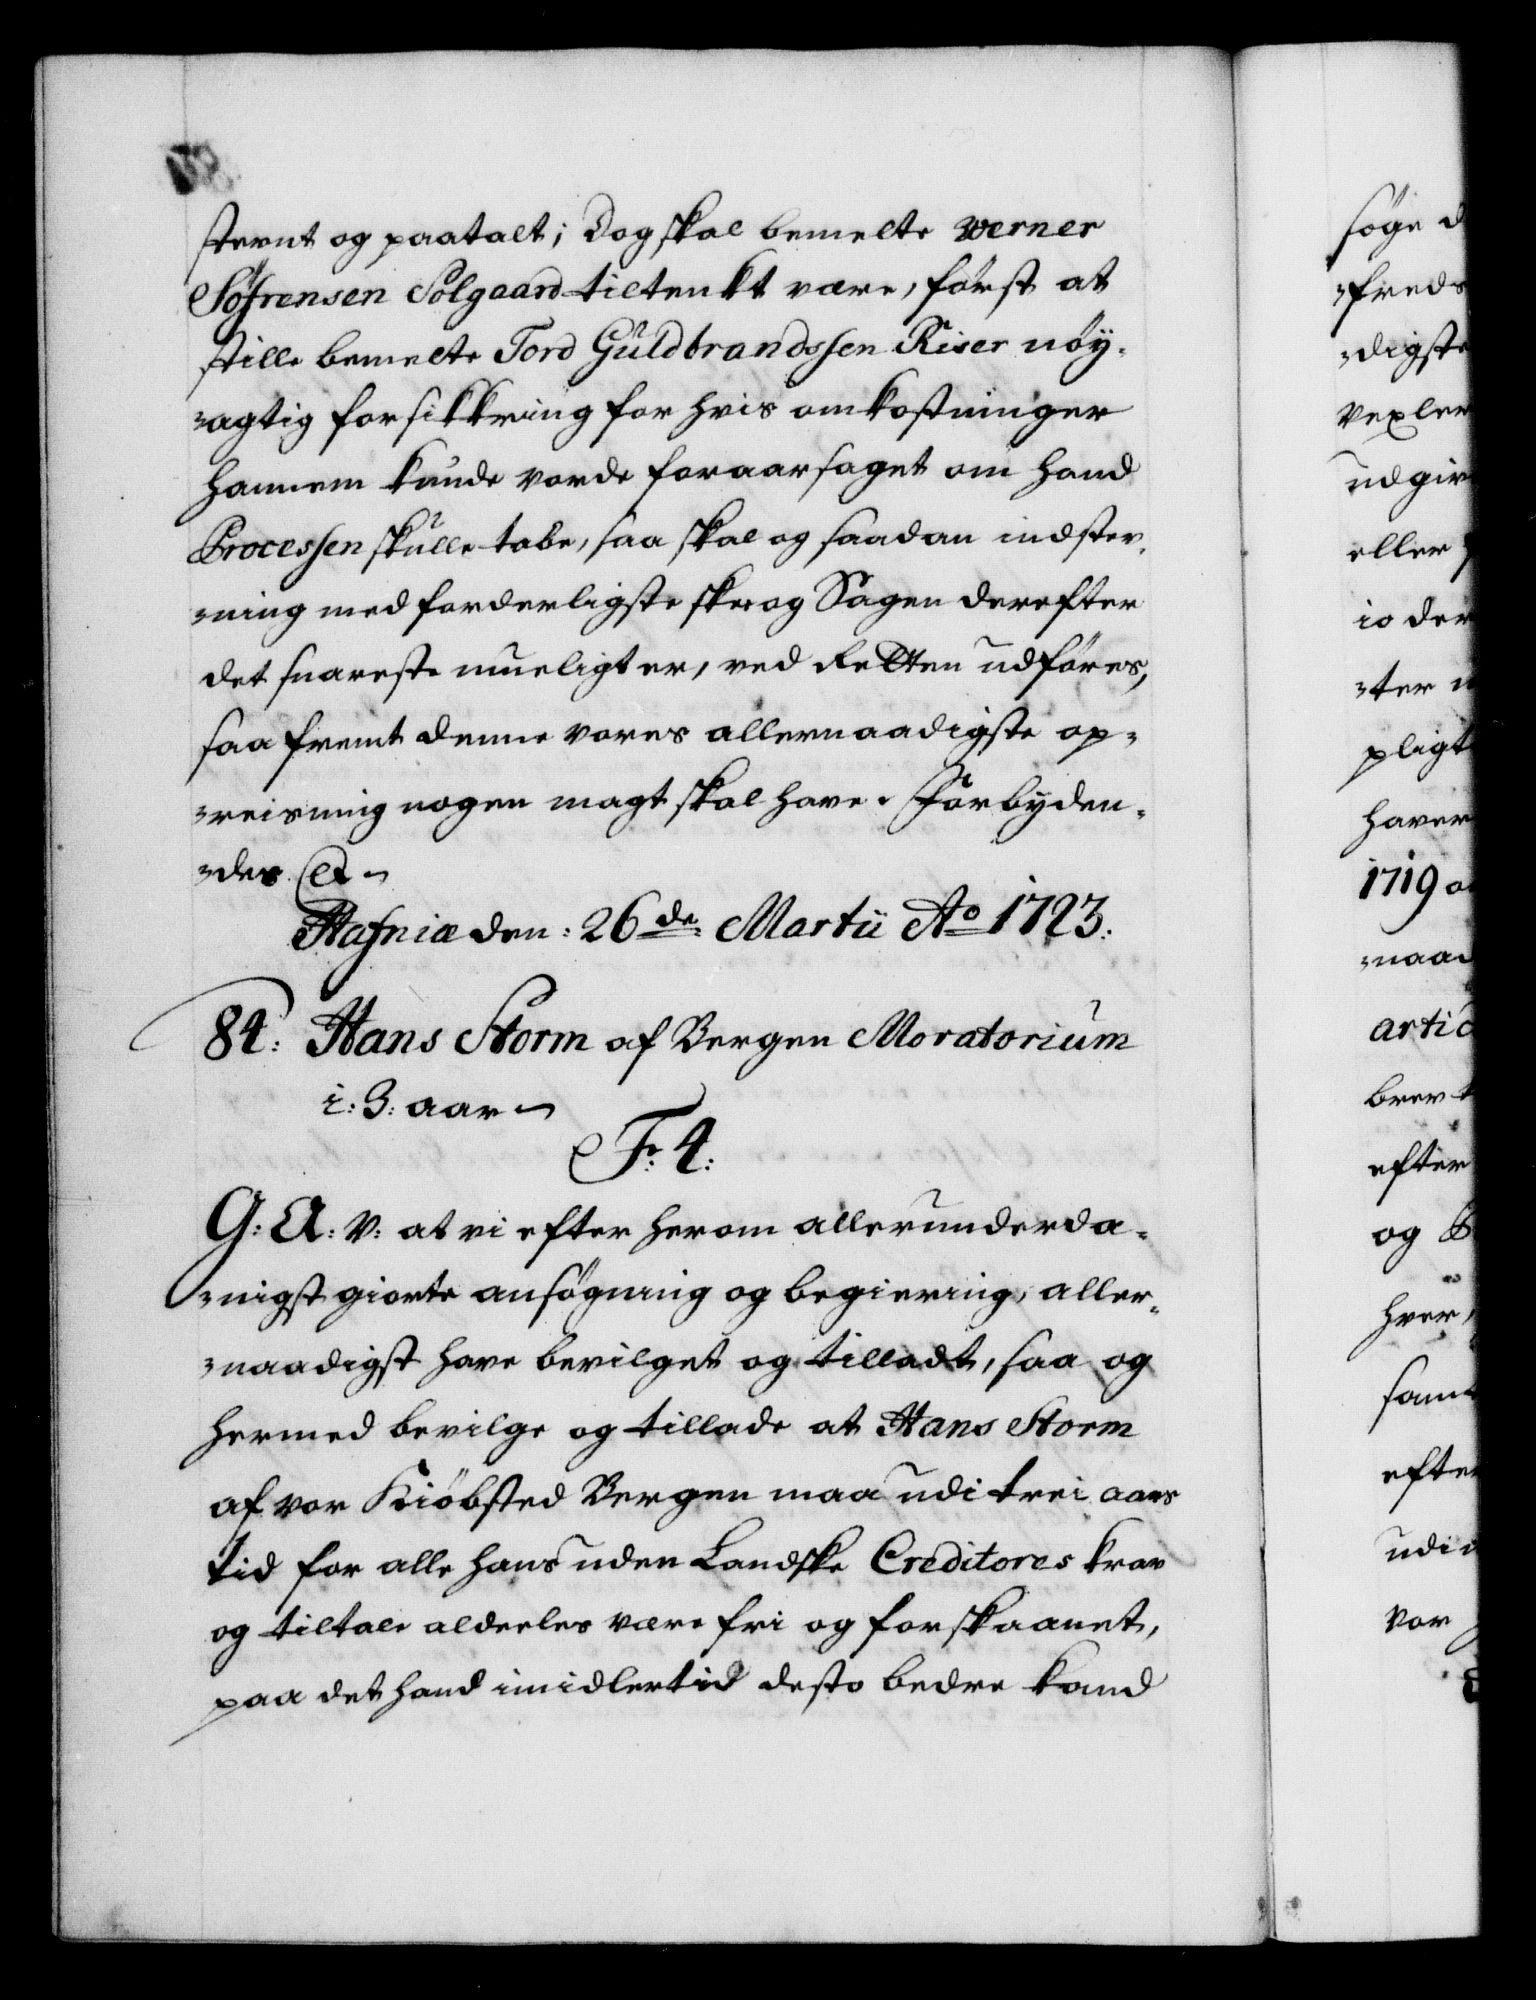 stevnt og paatalt; Dog skal bemelte Werner
Söfrensen Solgaard tiltenkt være, först at
stille bemelte Tord Guldbrandssen Riser nöy-
-agtig forsikkring for hvis omkostninger
hannem kunde vorde foraarsaget om hand
Processen skulle tabe, saa skal og saadan indstev-
-ning med forderligste skee og Sagen derefter
det snareste mueligt er, ved Retten udföres,
saa fremt denne vores allernaadigste op-
-reisning nogen magt skal have. Forbyden-
-des etc
Hafniæ den: 26de Martii Ao 1723.
84: Hans Storm af Bergen Moratorium
i: 3: aar
Fr: 4:
G: A: V: at vi efter herom allerunderda-
-nigst giorte ansögning og begiering, aller-
-naadigst have bevilget og tilladt, saa og
hermed bevilge og tillade at Hans Storm
af vor Kiöbsted Bergen maa udi trei aars
tid for alle hans uden Landske Creditores krav
og tiltale aldeeles være fri og forskaanet,
paa det hand imidlertid desto bedre kand
söge d
-freds
-digste
vexler
udgiv
eller
io der
-ter
pligt
haver
1719
-naad
artic
brev
efter
og
hver,
samt
efter
udi
vor